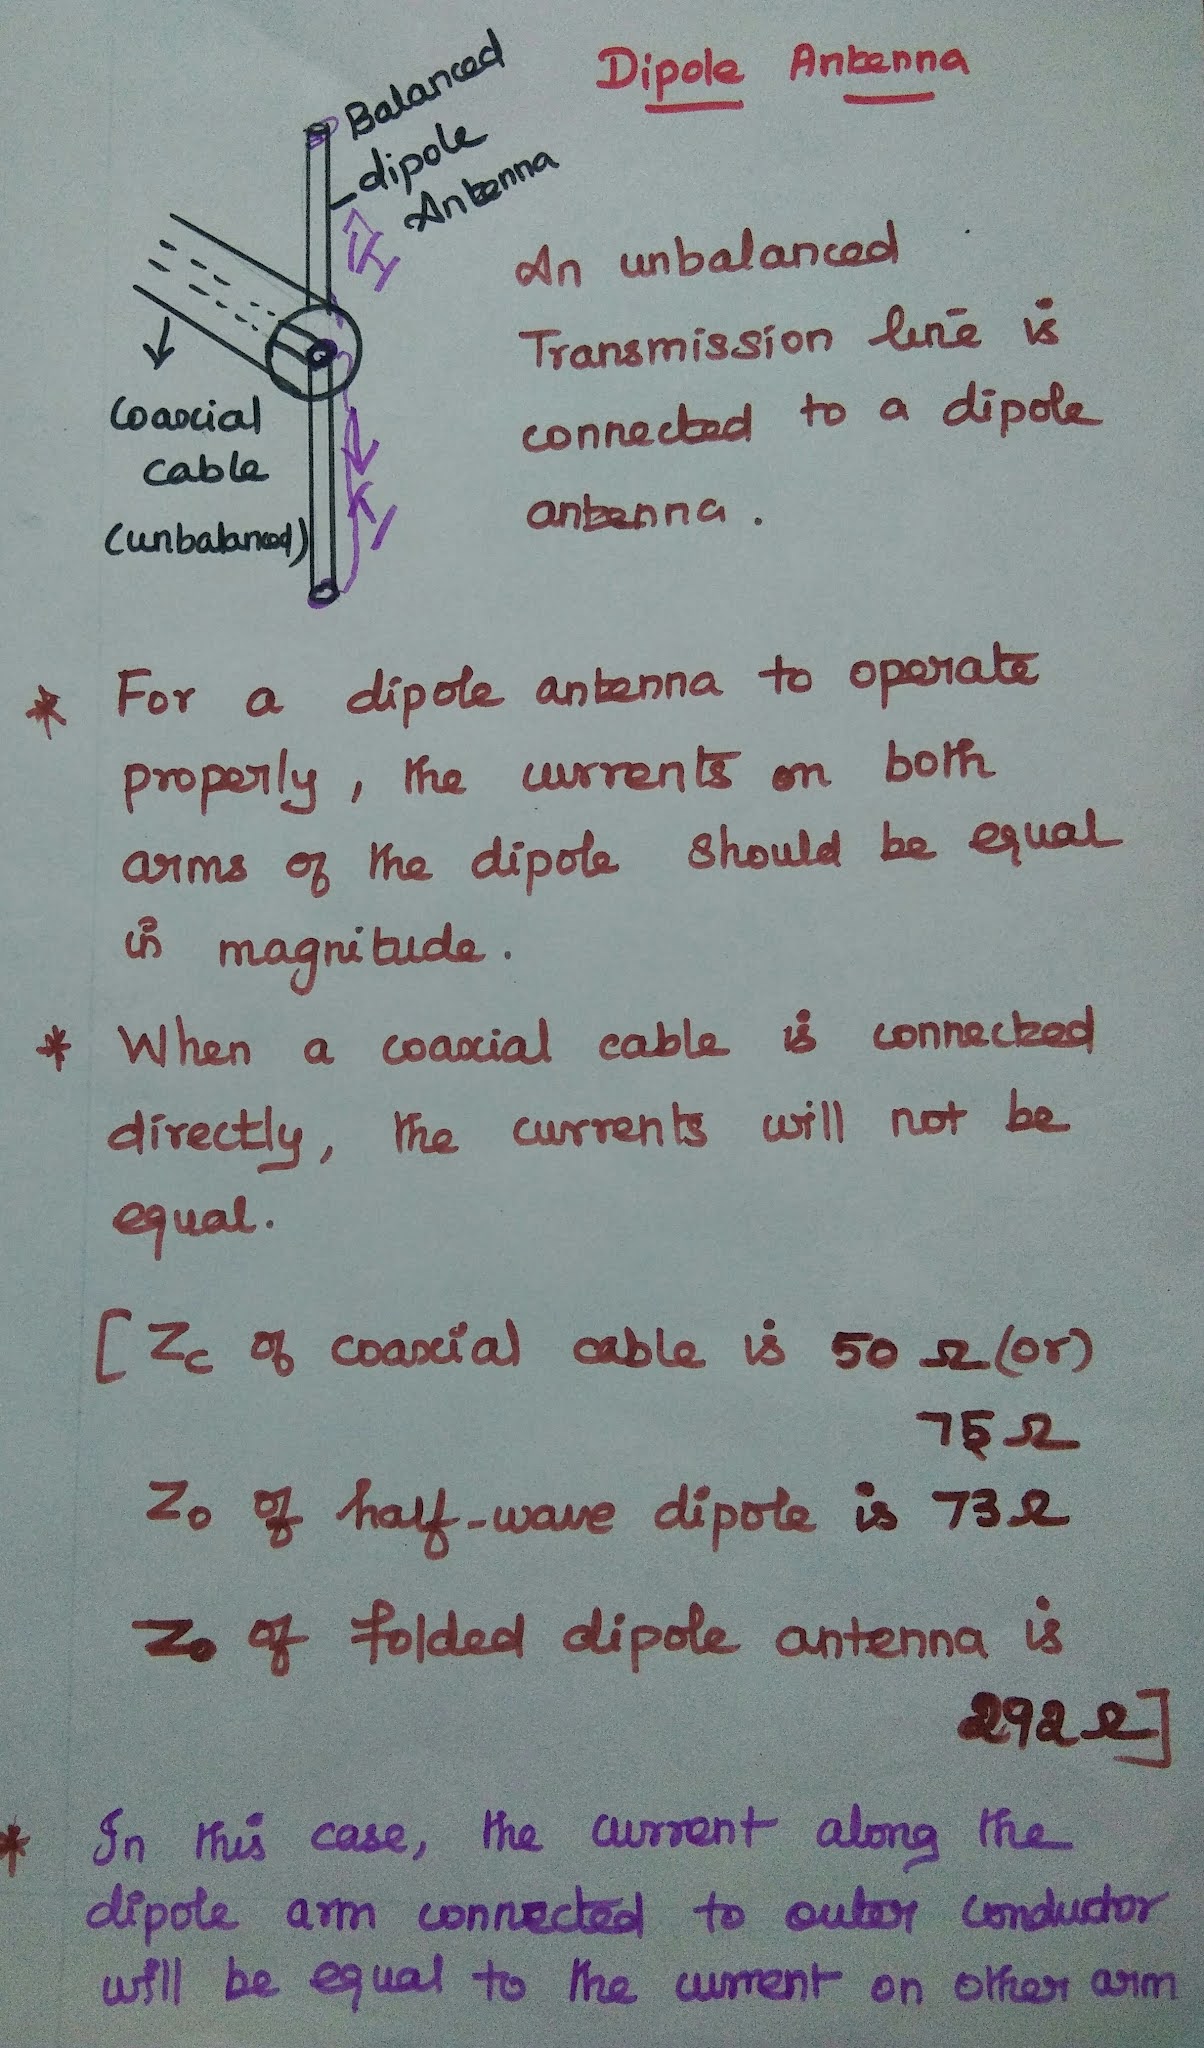 Dipole Antenna
Balanced
dipole
Antenna
An unbalanced
Transmission line is
connected to a dipole
antenna.
Coaxial
cable
(unbalanced)
* For a dipole antenna to operate
properly, the currents on both
arms of the dipole should be equal
in magnitude.
* When a coaxial cable is connected
directly, the currents will not be
equal.
[Zc of coaxial cable is 50 Ω (or)
75 Ω
Zo of half-wave dipole is 73 Ω
Zo of folded dipole antenna is
292 Ω]
* In this case, the current along the
dipole arm connected to outer conductor
will be equal to the current on other arm